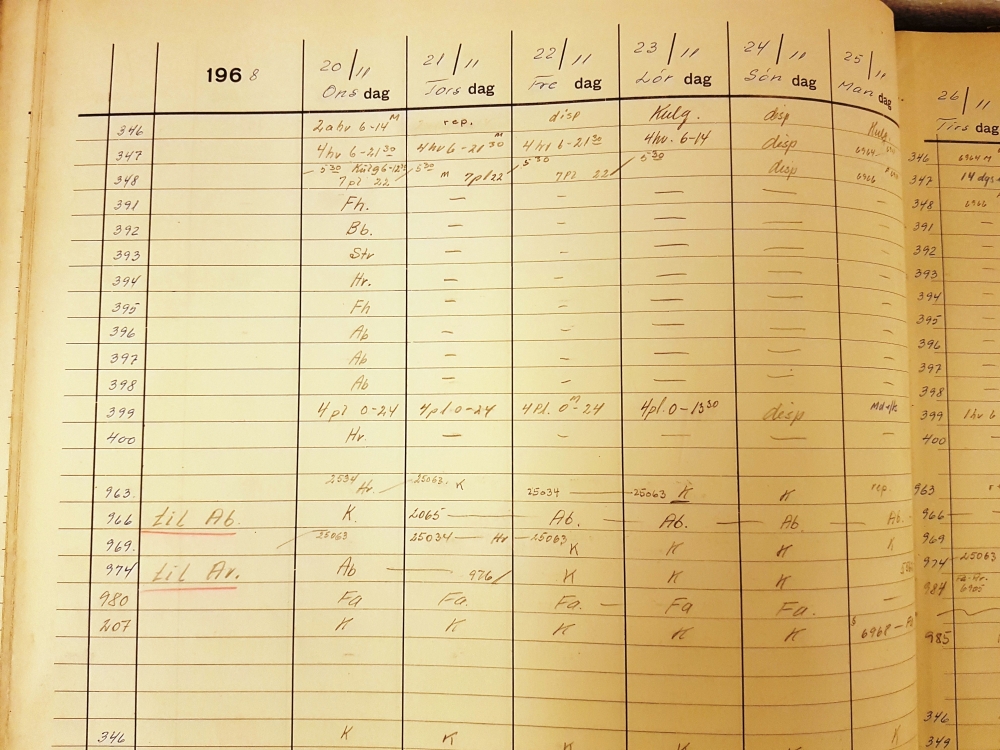 1968 20/11 21/11 22/11 23/11 24/11 25/11 26/11
Onsdag Torsdag Fredag Lördag Söndag Mandag Tirsdag
346 2ahv 6-14 M rep. disp Kulg. disp Kulg 346 6964 M
347 4hv 6-21 30 4hv 6-21 30 M 4hv 6-21 30 4hv. 6-14 disp 6964 347 14 dgs
5 30 Kulg 6-12 30 5 30 5 30 5 30
348 7pl 22 M 7pl 22 7pl 22 disp 6966 348 6966
391 Fh. — — — — — 391 —
392 Bb. — — — — — 392 —
393 Str — — — — — 393 —
394 Hr. — — — — — 394 —
395 Fh — — — — — 395 —
396 Ab — — — — — 396 —
397 Ab — — — — — 397 —
398 Ab — — — — — 398 —
399 4pl 0-24 4pl. 0-24 4Pl. 0-24 M 4pl. 0-13 30 disp 399 1hv 6
400 Hr. — — — — — 400 —
963. 2534 Hr. 25063. K 25034 — 25063 K K rep. 963
966 til Ab. K. 2065 — Ab. — Ab. — Ab — Ab. 966 —
969. 25063 25034 — Hr — 25063 K K K K 969
974 til Ar. Ab — 976/ K K K 974 — 25063
980 Fa Fa. Fa. — Fa Fa. — 984 Fa-Hr. 6905
207 K K K K K 6968 — 985
346 K K K 346
349